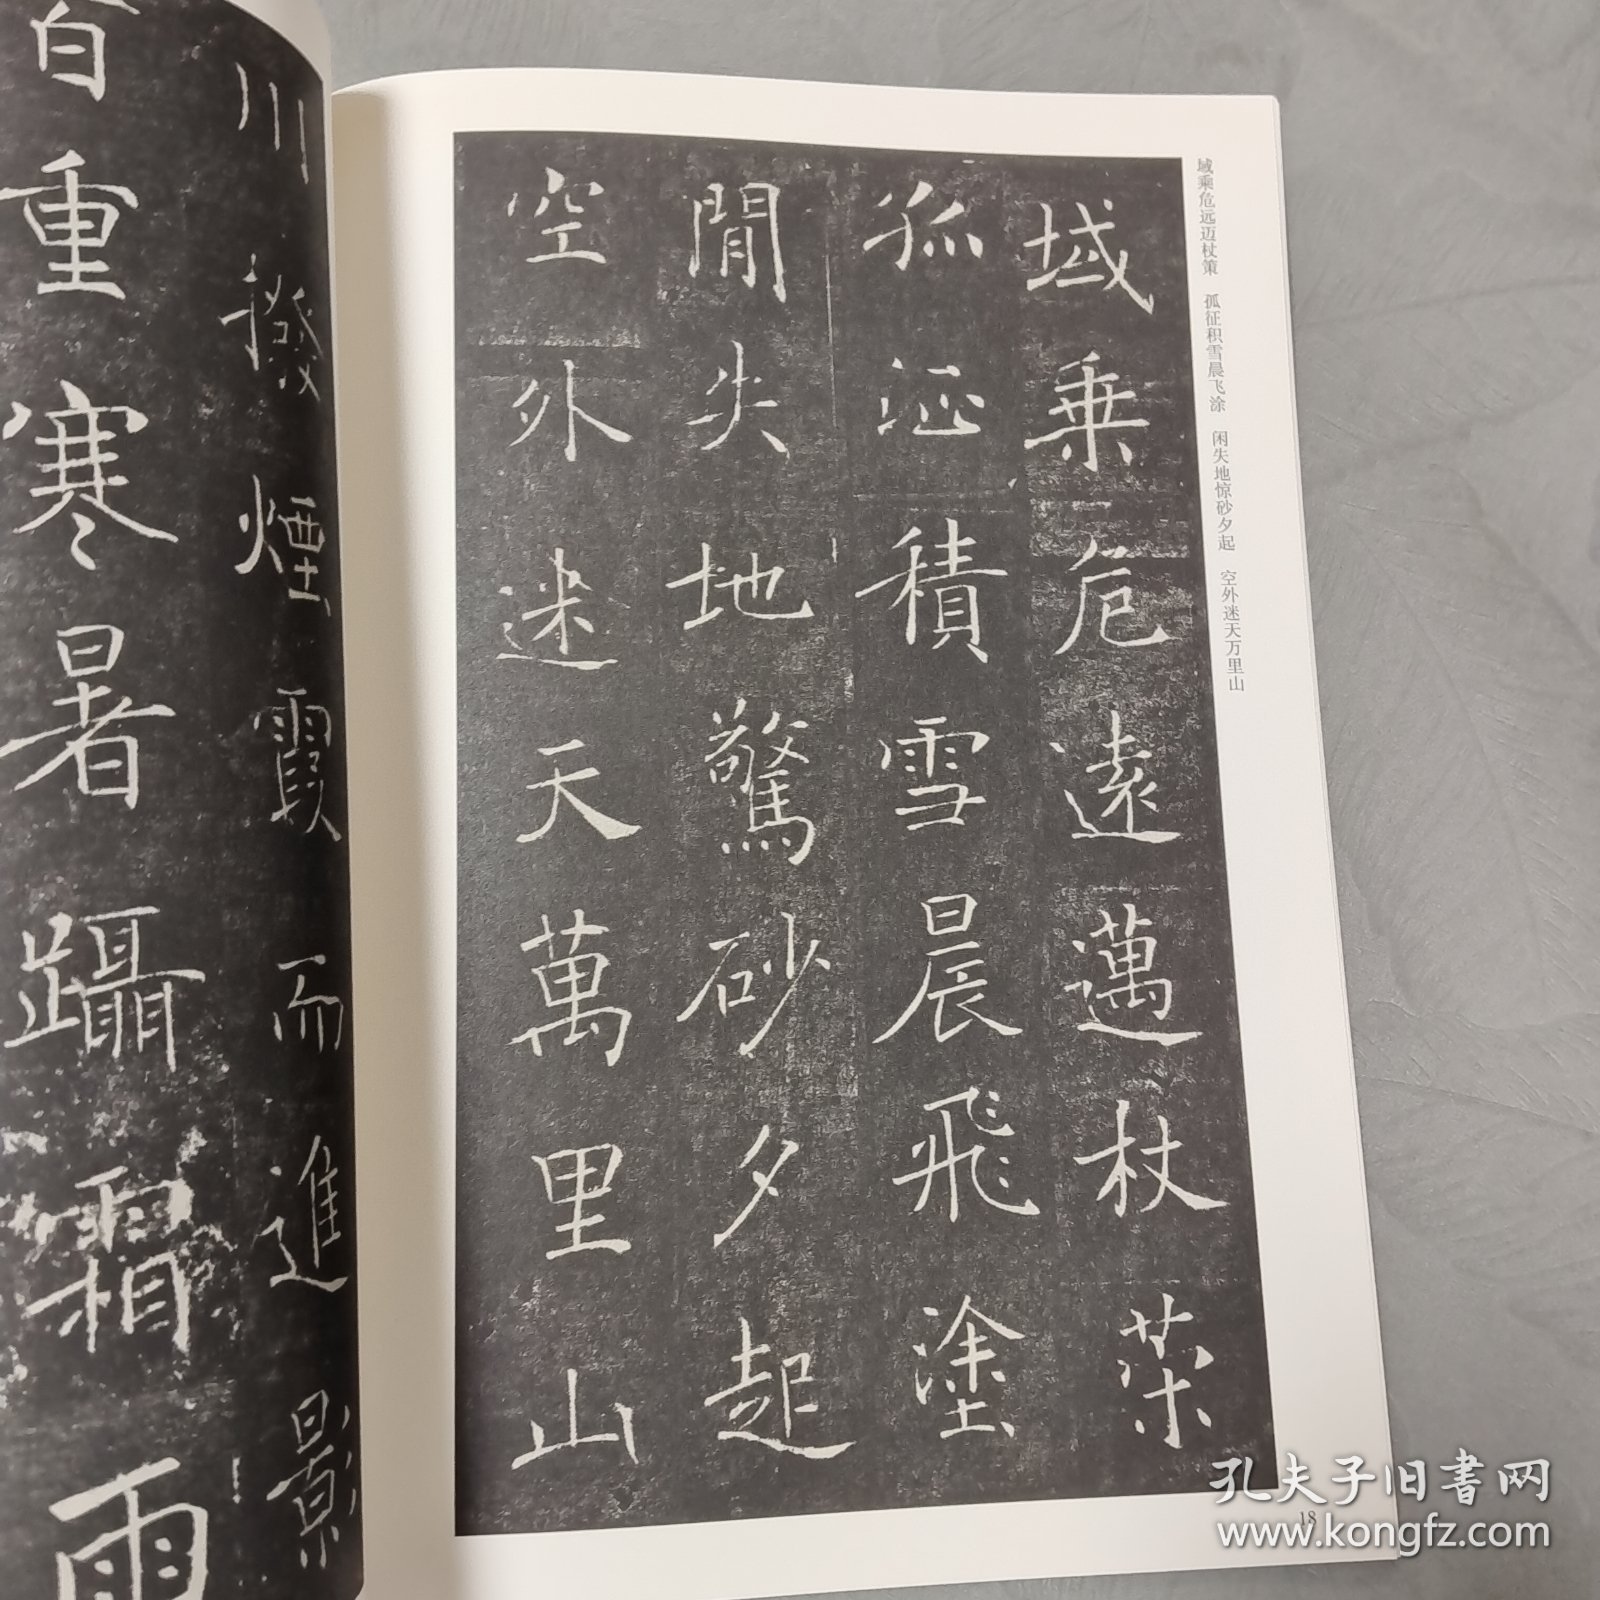 域乘危远迈杖策 孤征积雪晨飞涂 闲失地惊砂夕起 空外迷天万里山
域乗危遠邁杖䇿
孤征積雪晨飛塗
閒失地驚砂夕起
空外迷天萬里山
川撥煙霞而進影
百重寒暑躡霜雨
18
孔夫子旧书网
www.kongfz.com